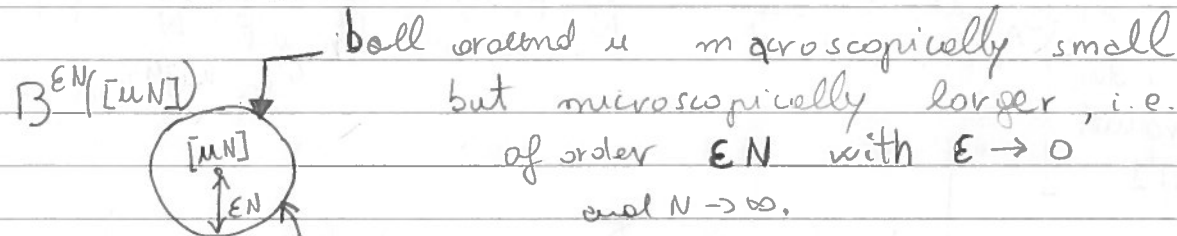 ball around u macroscopically small
B^{εN}([uN]) but microscopically larger, i.e.
[uN] of order εN with ε → 0
εN and N → ∞.